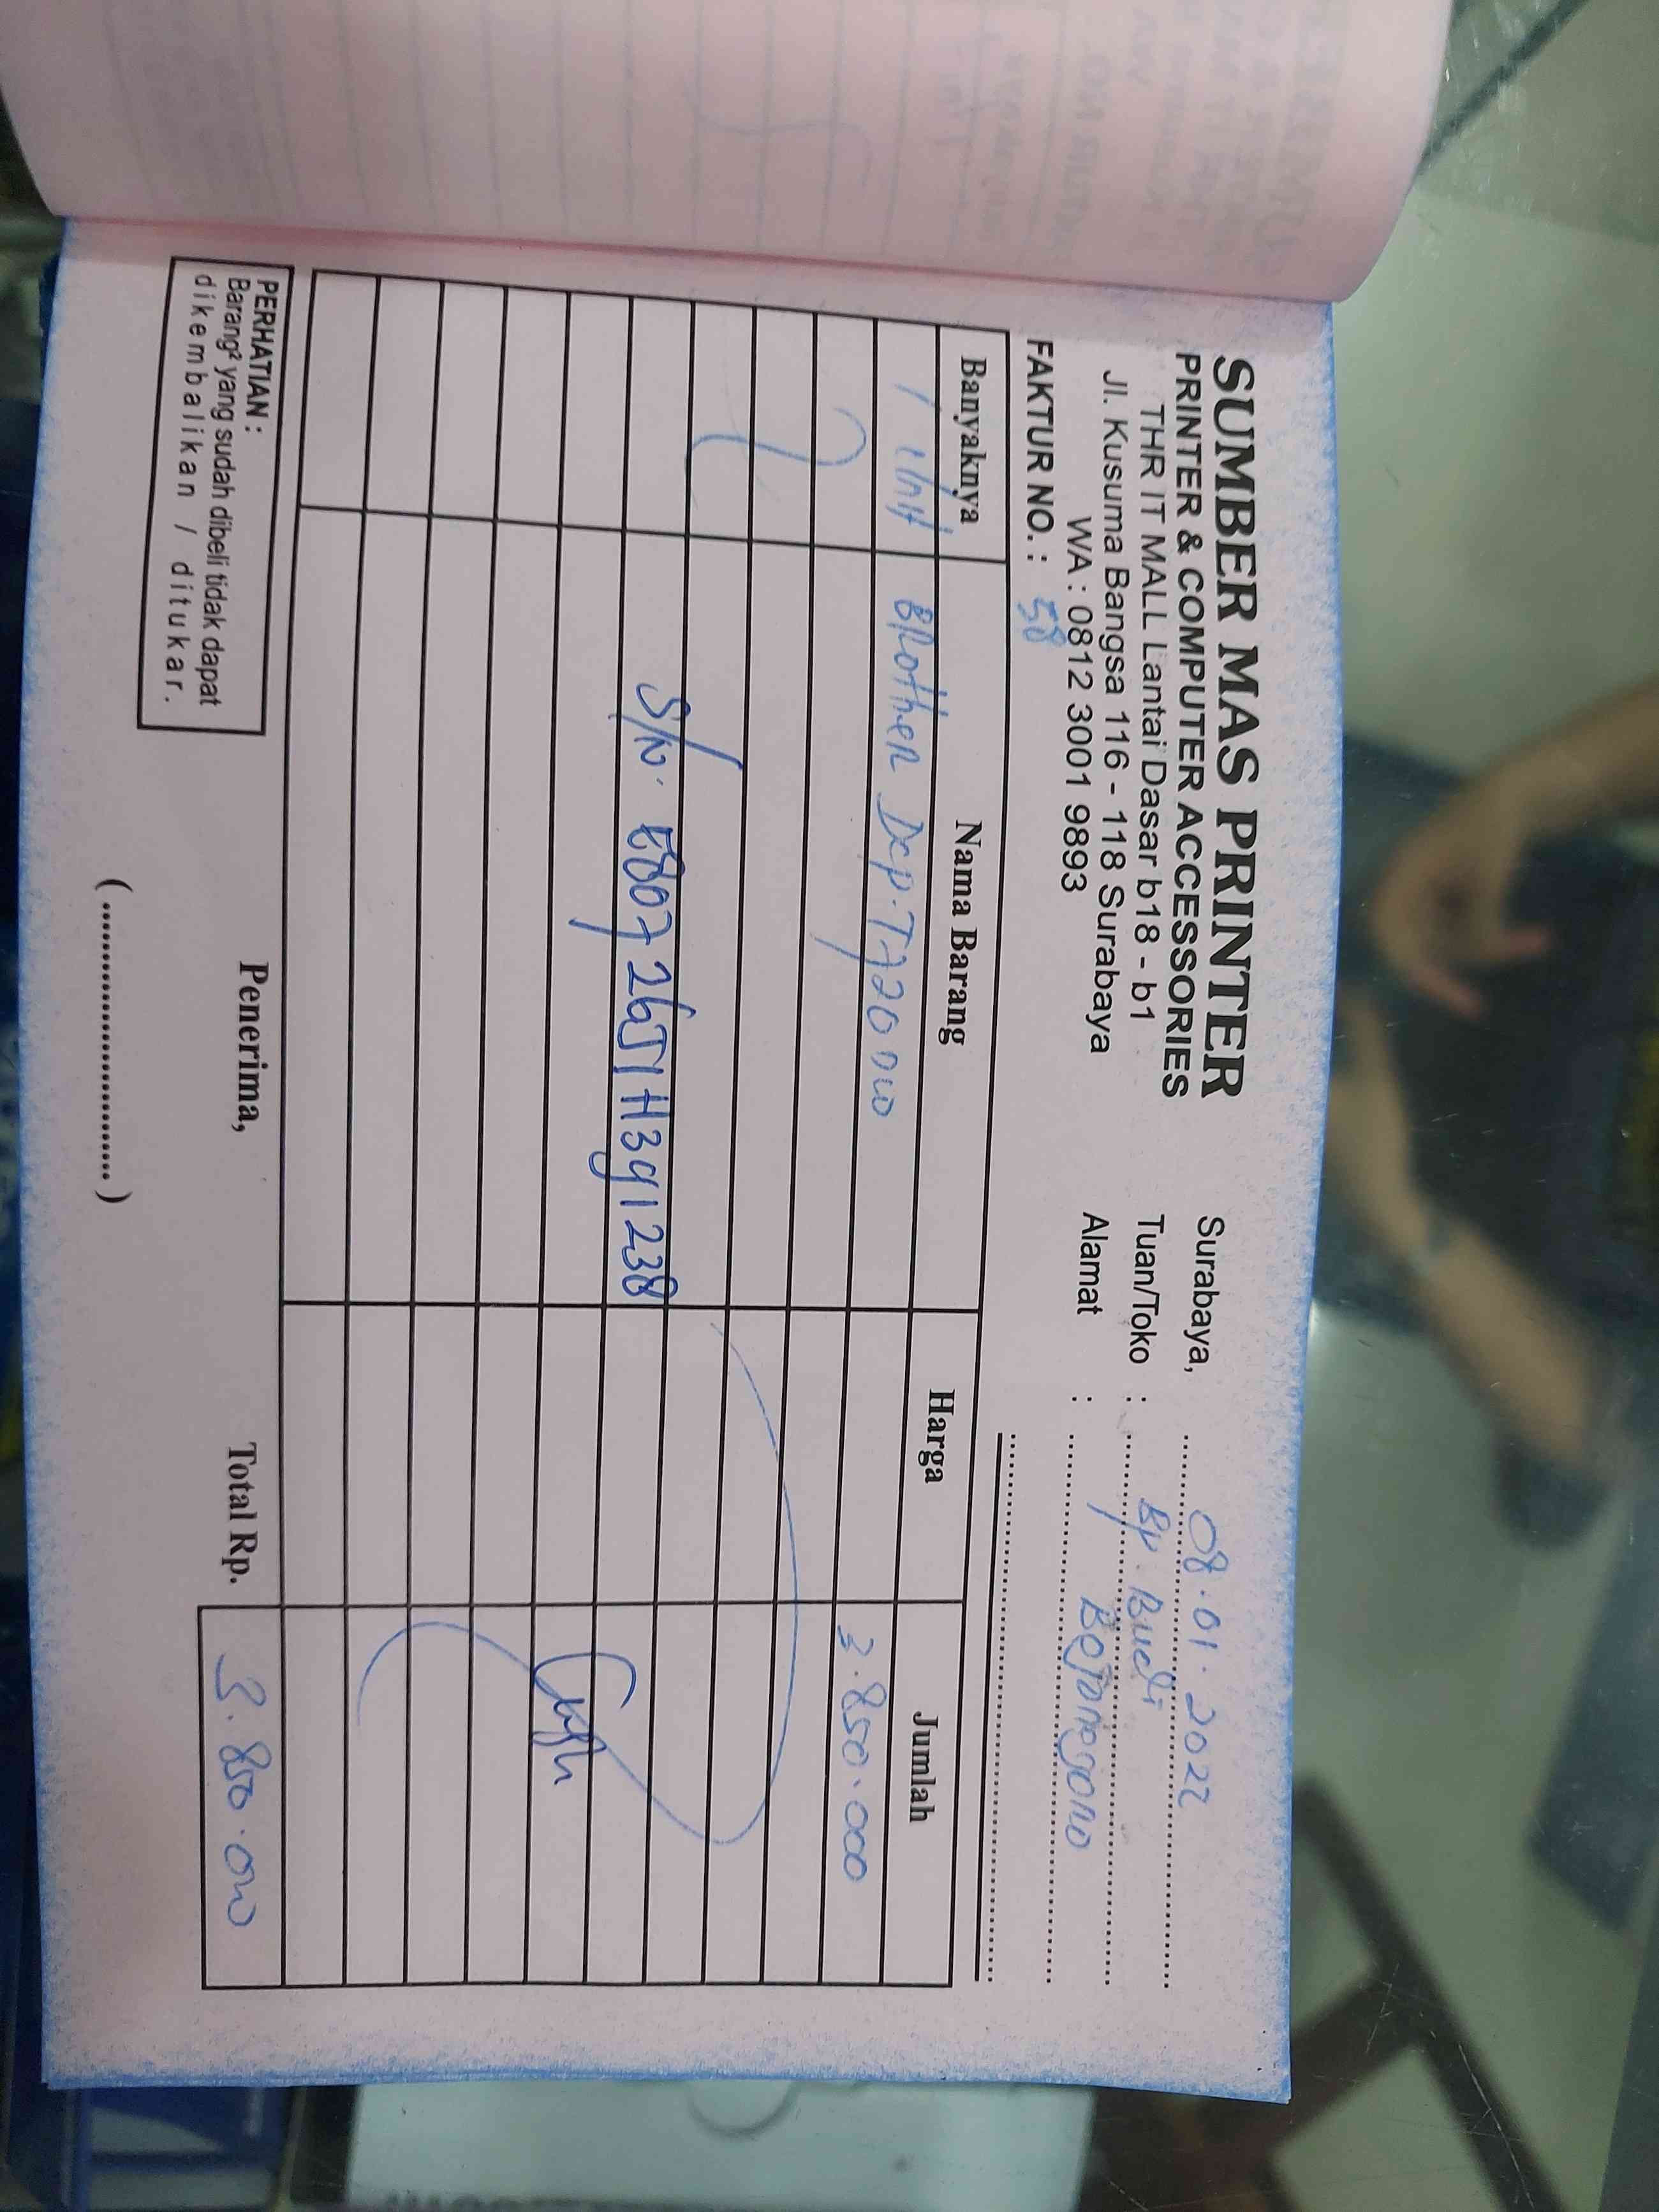 SUMBER MAS PRINTER
PRINTER & COMPUTER ACCESSORIES
THR IT MALL Lantai Dasar b18 - b1
Jl. Kusuma Bangsa 116 - 118 Surabaya
WA : 0812 3001 9893
FAKTUR NO. : 58
Surabaya, 08.01.2022
Tuan/Toko : Bp. Budi
Alamat : Bojonegoro
Banyaknya Nama Barang Harga Jumlah
1 Unit Brother Dcp.T720 DW 3.850.000
S/N. E80726J1H391238
Cash
PERHATIAN :
Barang² yang sudah dibeli tidak dapat
dikembalikan / ditukar.
Penerima,
(..............................)
Total Rp. 3.850.000